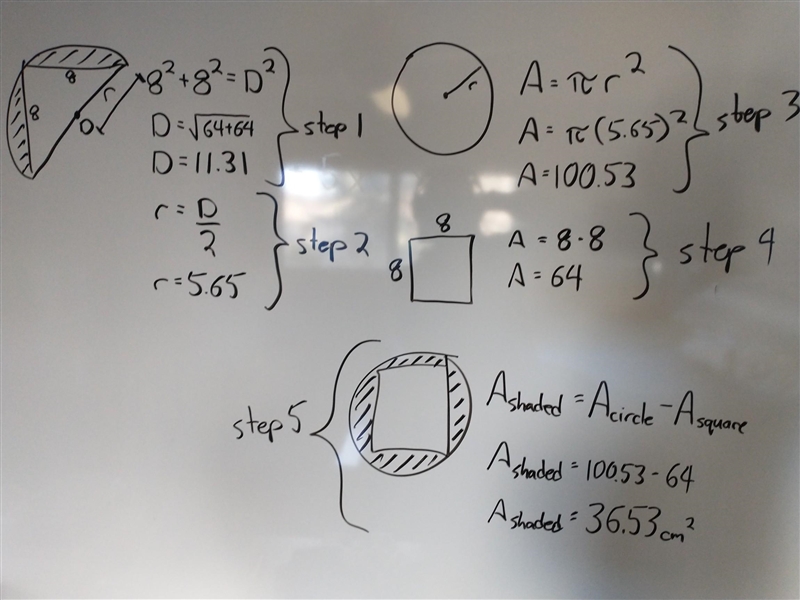 8
8
r
D
8² + 8² = D²
D = √64+64
D = 11.31
step 1
r = D/2
r = 5.65
step 2
r
A = πr²
A = π(5.65)²
A = 100.53
step 3
8
8
A = 8·8
A = 64
step 4
step 5
Ashaded = Acircle - Asquare
Ashaded = 100.53 - 64
Ashaded = 36.53 cm²